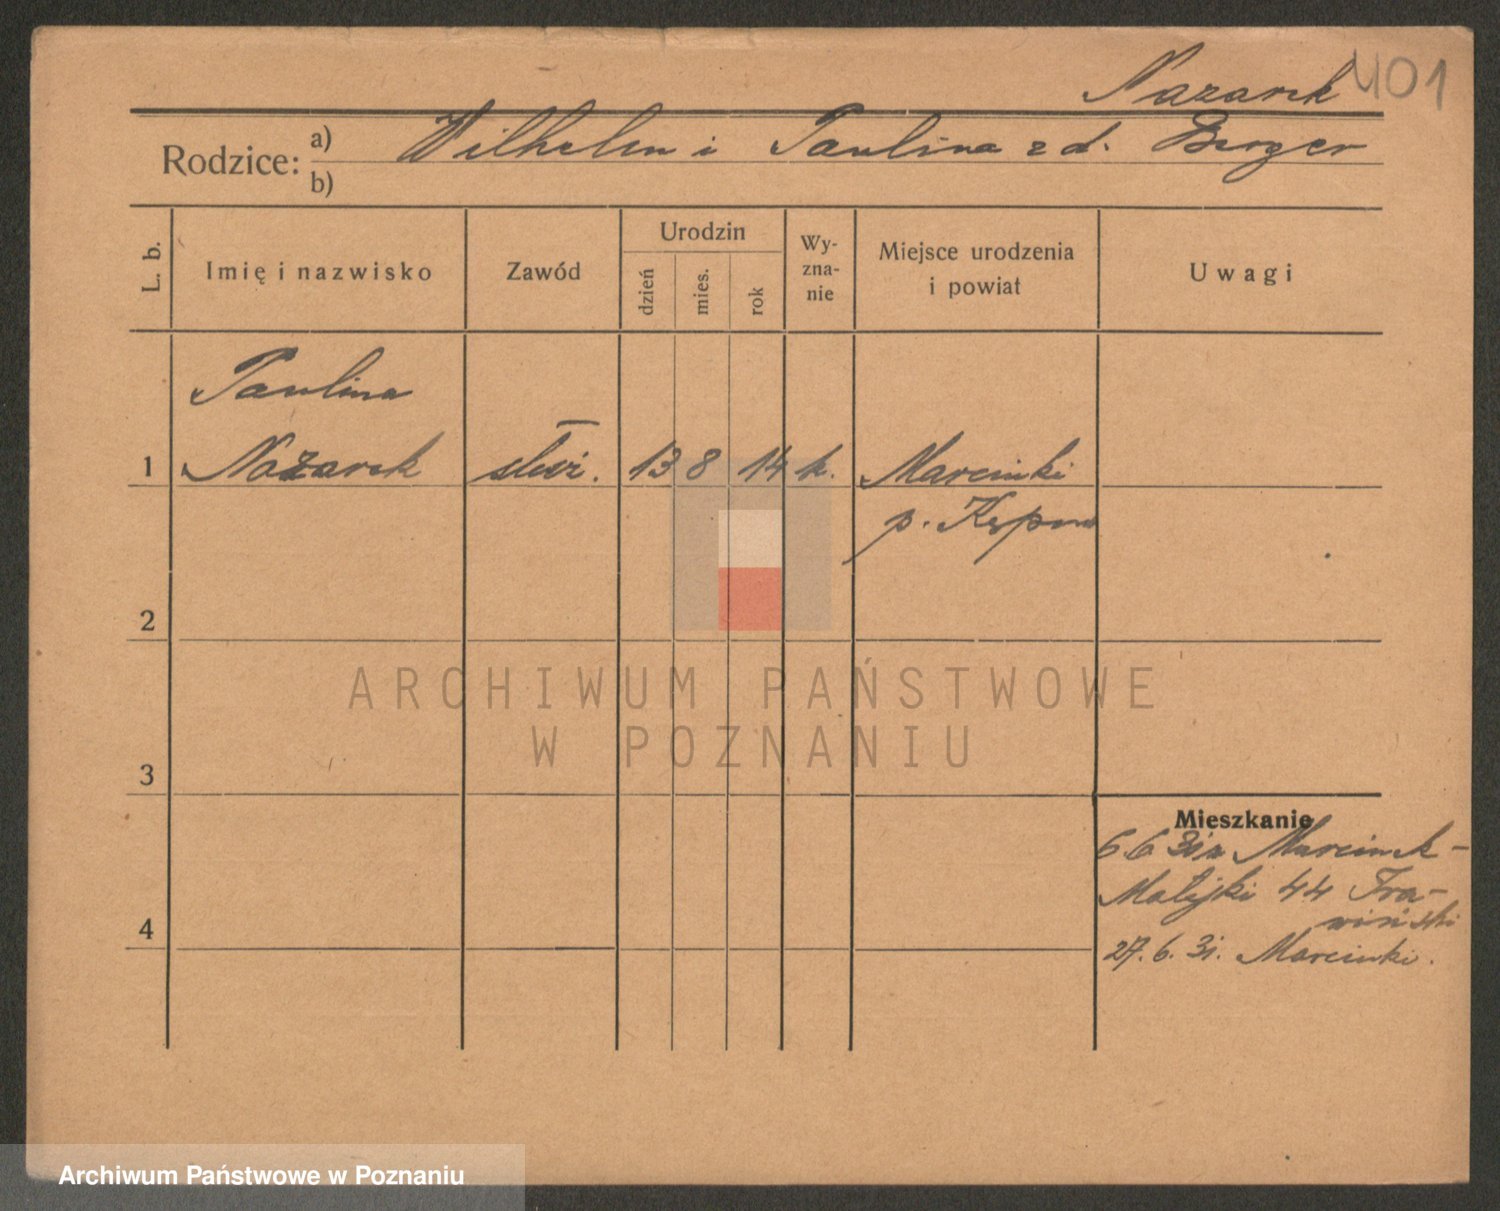 Nazarek 401
Rodzice: a) Wilhelm i Paulina z d. Berger
b)
L. b.
Imię i nazwisko
Zawód
Urodzin
dzień
mies.
rok
Wy-
zna-
nie
Miejsce urodzenia
i powiat
Uwagi
Paulina
1 Nazarek służ. 13 8 14 k. Marcinki
p. Kępno
2
3
4
ARCHIWUM PAŃSTWOWE
W POZNANIU
Mieszkanie
6.6 31 z Marcinek-
Matejki 44 Tra-
wiński
27.6.31. Marcinki.
Archiwum Państwowe w Poznaniu